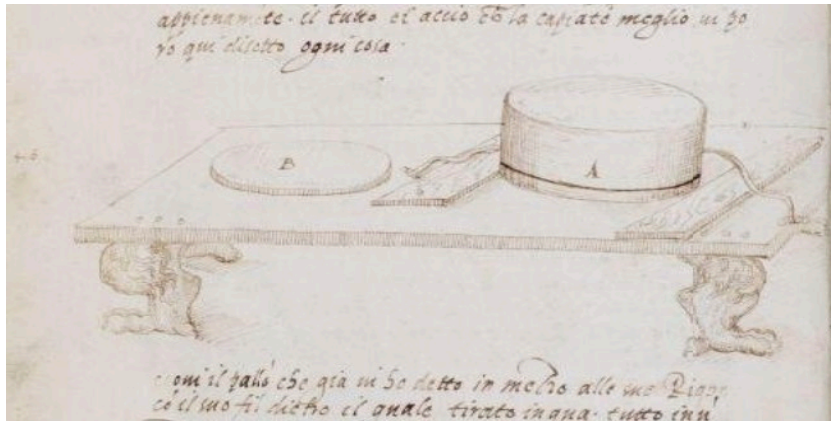 appienamēte. il tutto et acciò cō la capiate meglio ui po
rò qui disotto ogni cosa.
46
B
A
oui il pallō che già ui ho detto in mezzo alle sue Righe
cō il suo fil dietro il quale tirato inqua. tutto inū